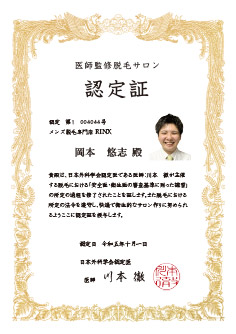 医師監修脱毛サロン
認定証
認定 第1 004044号
メンズ脱毛専門店 RINX
岡本 悠志 殿
貴殿は、日本外科学会認定医である医師：川本 徹が主催
する脱毛における「安全面・衛生面の審査基準に則った講習」
の所定の過程を修了されたことを証します。また脱毛における
所定の法令を遵守し、快適で衛生的なサロン作りに努められ
るようここに認定証を授与します。
認定日 令和五年十月一日
日本外科学会認定医
医師 川本 徹